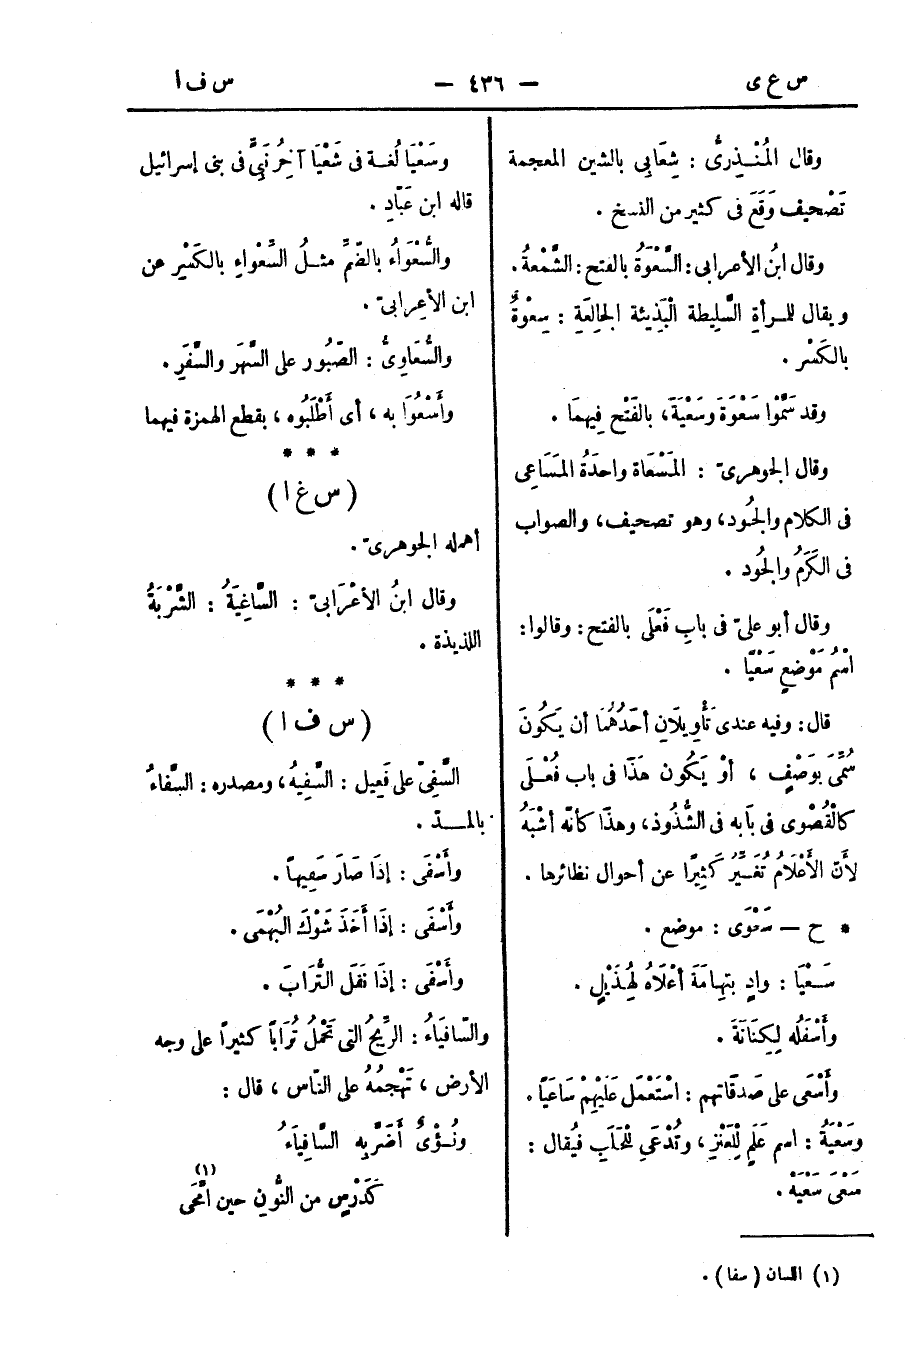 س ع ى — ٤٣٦ — س ف ا
وقال المُنْـذِرِىُّ : شِعَابِي بالشين المعجمة
تَصْحيف وَقَعَ فى كثير من النسخ .
وقال ابنُ الأعرابى : السَّعْوَةُ بالفتح : الشَّمْعةُ .
ويقال للمـرأةِ السَّلِيطة الْبَذِيئة الجالِعَةِ : سِعْوةٌ
بالكَسْر .
وقد سَمَّوْا سَعْوَةَ وَسَعْيَةَ ، بالفَتْح فِيهِمَا .
وقال الجوهرىّ : المَسْعَاة واحدَةُ المَسَاعِى
فى الكلام والجُود ، وهو تصحيف ، والصواب
فى الكَرَمُ والجُود .
وقال أبو علىّ فى بابِ فَعْلَى بالفتح : وقالوا :
اسْمُ مَوْضعٍ سَعْيَا .
قال : وفيه عندى تَأْوِيلَانِ أحَدُهُمَا أن يَكُونَ
سُمِّىَ بوَصْفٍ ، أوْ يَكُون هَذَا فى باب فُعْلَى
كالْقُصْوى فى بَابه فى الشُّذُوذ ، وهذَا كأنّه أشْبَهُ
لأَنّ الأَعْلَامَ تُغَيَّرُ كَثِيرًا عن أحوال نظائرها .
* ح — سَعْوَى : موضع .
سَـعْيَا : وادٍ بتِهامَةَ أعْلَاهُ لِهُذَيْلٍ .
وأَسْفَلُه لِكِنَانَةَ .
وأَسْعَى على صَدَقَاتهم : اسْتَعْمَل عَلَيْهِمْ سَاعِيًا .
وَسَعْيَةُ : اسم عَلَمٍ لِلْعَنْزِ ، وتُدْعَى لِلْحَلَبِ فيُقال :
سَعْىَ سَعْيَهْ .
وسَعْيَا لُغـة فى شَعْيَا آخِرُ نَبِىٍّ فى بنى إسرائيل
قاله ابن عَبَّادِ .
والسُّعْوَاءُ بالضّمِّ مثـلُ السِّعْواءِ بالكَسْرِ عن
ابن الأعرابىّ .
والسُّعَاوِىُّ : الصّبُور على السَّهَر والسَّفَرِ .
وأَسْعُوا به ، أى أَطْلَبُوه ، بقطع الهمزة فيهما
* * *
( س غ ا )
أهمله الجوهرىّ .
وقال ابنُ الأعْرَابىّ : السَّاغِيَةُ : الشَّرْبَةُ
اللذيذة .
* * *
( س ف ا )
السَّفِىّ على فَعِيل : السَّفِيهُ ، ومصدره : السَّفاءُ
بالمــدّ .
وأَسْفَى : إذَا صَارَ سَفِيهاً .
وأَسْفَى : إذَا أَخَذَ شَوْكَ البُهْمَى .
وأَسْفَى : إذَا نَقَل التُّرَابَ .
والسّافِيَاءُ : الرِّيحُ التى تَحْمِلُ تُرَاباً كثيراً على وجه
الأرض ، تَهْجمُهُ على النّاس ، قال :
ونُـؤْىٌ أَضَرَّ به السَّافِيَاءُ
كَدَرْسٍ من النُّونِ حين امَّحَى (١)
(١) اللسان (سفا) .